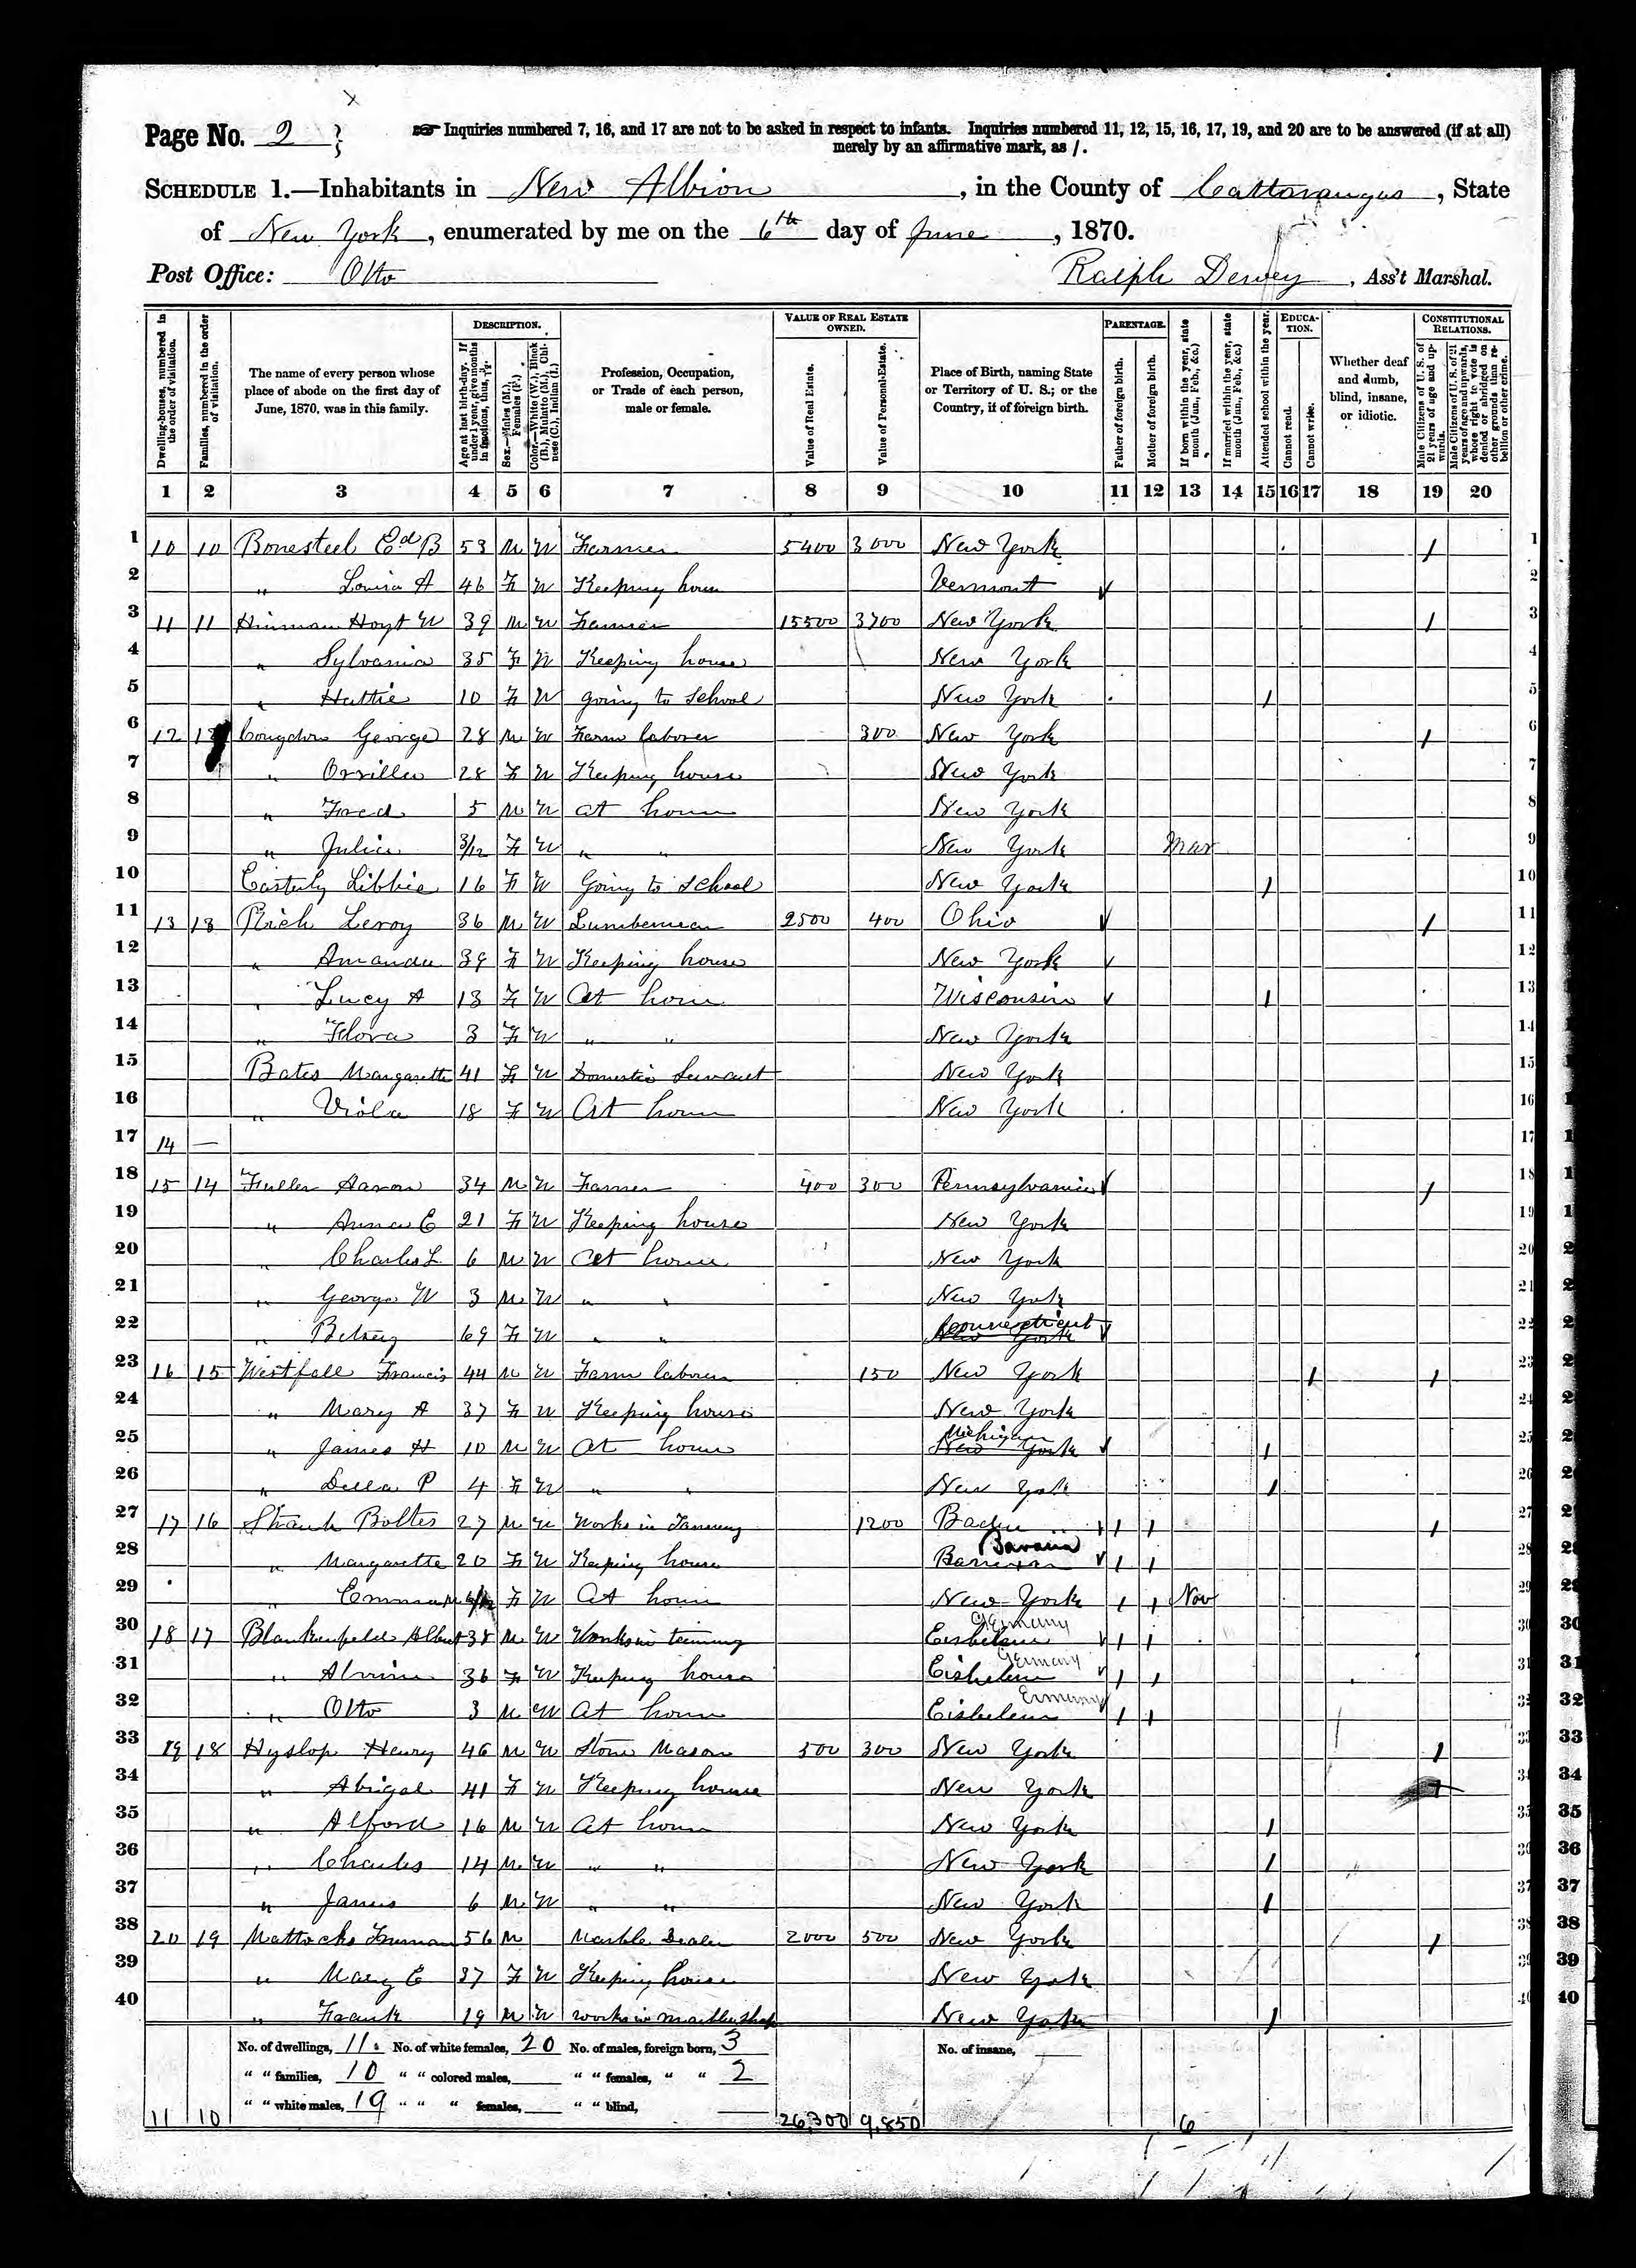 Page No. 2
☞ Inquiries numbered 7, 16, and 17 are not to be asked in respect to infants. Inquiries numbered 11, 12, 15, 16, 17, 19, and 20 are to be answered (if at all)
merely by an affirmative mark, as /.
SCHEDULE 1.—Inhabitants in New Albion, in the County of Cattaraugus, State
of New York, enumerated by me on the 6th day of June, 1870.
Post Office: Otto Ralph Dewey, Ass't Marshal.
Dwelling-houses, numbered in the order of visitation.
Families, numbered in the order of visitation.
The name of every person whose place of abode on the first day of June, 1870, was in this family.
DESCRIPTION.
Age at last birth-day. If under 1 year, give months in fractions, thus,
Sex.—Males (M.), Females (F.)
Color.—White (W.), Black (B.), Mulatto (M.), Chinese (C.), Indian (I.)
Profession, Occupation, or Trade of each person, male or female.
VALUE OF REAL ESTATE OWNED.
Value of Real Estate.
Value of Personal Estate.
Place of Birth, naming State or Territory of U. S.; or the Country, if of foreign birth.
PARENTAGE.
Father of foreign birth.
Mother of foreign birth.
If born within the year, state month (Jan., Feb., &c.)
If married within the year, state month (Jan., Feb., &c.)
Attended school within the year.
EDUCATION.
Cannot read.
Cannot write.
Whether deaf and dumb, blind, insane, or idiotic.
CONSTITUTIONAL RELATIONS.
Male Citizens of U. S. of 21 years of age and upwards.
Male Citizens of U. S. of 21 years of age and upwards, whose right to vote is denied or abridged on other grounds than rebellion or other crime.
1 2 3 4 5 6 7 8 9 10 11 12 13 14 15 16 17 18 19 20
1 10 10 Bonesteel Ed B 53 M W Farmer 5400 3000 New York / 1
2 " Louisa A 46 F W Keeping house Vermont 2
3 11 11 Hinman Hoyt W 39 M W Farmer 15500 3700 New York / 3
4 " Sylvania 35 F W Keeping house New York 4
5 " Hattie 10 F W going to School New York / 5
6 12 12 Congdon George 28 M W Farm laborer 300 New York / 6
7 " Orrilla 28 F W Keeping house New York 7
8 " Fred 5 M W at home New York 8
9 " Julia 3/12 F W " " New York Mar 9
10 Easterly Libbie 16 F W Going to School New York / 10
11 13 13 Rich Leroy 36 M W Lumberman 2500 400 Ohio / 11
12 " Amanda 39 F W Keeping house New York 12
13 " Lucy A 13 F W At home Wisconsin / 13
14 " Flora 3 F W " " New York 14
15 Bates Margarette 41 F W Domestic Servant New York 15
16 " Viola 18 F W At home New York 16
17 14 — 17
18 15 14 Fuller Aaron 34 M W Farmer 400 300 Pennsylvania / 18
19 " Anna E 21 F W Keeping house New York 19
20 " Charles L 6 M W At home New York 20
21 " George W 3 M W " " New York 21
22 " Betsey 69 F W " " New York Connecticut 22
23 16 15 Westfall Francis 44 M W Farm laborer 150 New York / / 23
24 " Mary A 37 F W Keeping house New York 24
25 " James H 10 M W At home New York Michigan / 25
26 " Della P 4 F W " " New York / 26
27 17 16 Bolter 27 M W Works in Tannery 1200 Baden / / / 27
28 " Margarette 20 F W Keeping house Bavaria / / 28
29 " Emma F W At home New York / / Nov 29
30 18 17 Blankenfeld Albert 38 M W Works in tannery Germany / / 30
31 " 36 F W Keeping house Germany / / 31
32 " Otto 3 M W At home Germany / / 32
33 19 18 Hyslop Henry 46 M W Stone Mason 500 300 New York / 33
34 " Abigal 41 F W Keeping house New York 34
35 " Alford 16 M W At home New York / 35
36 " Charles 14 M W " " New York / 36
37 " James 6 M W " " New York / 37
38 20 19 Mattocks Truman 56 M Marble Dealer 2000 500 New York / 38
39 " Mary E 37 F W Keeping house New York 39
40 " Frank 19 M W works in marble shop New York / 40
No. of dwellings, 11 No. of white females, 20 No. of males, foreign born, 3 No. of insane,
" " families, 10 " " colored males, " " females, " " 2
" " white males, 19 " " " females, " " blind,
11 10 26,300 9,850 6